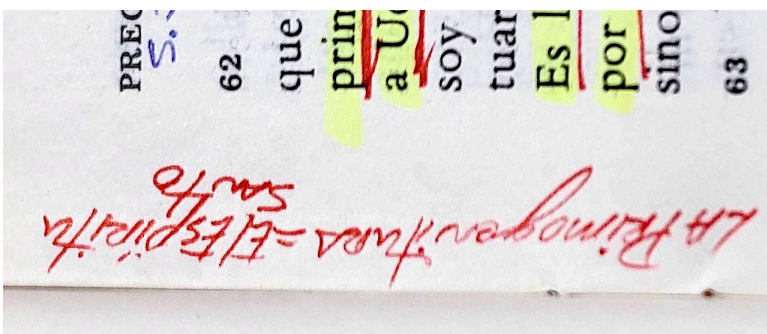 PREG
S.
62
que
prim
a U
soy
tuar
Es l
por
sino
63
LA PRimogenituRA = El EspíRitu
SANTO